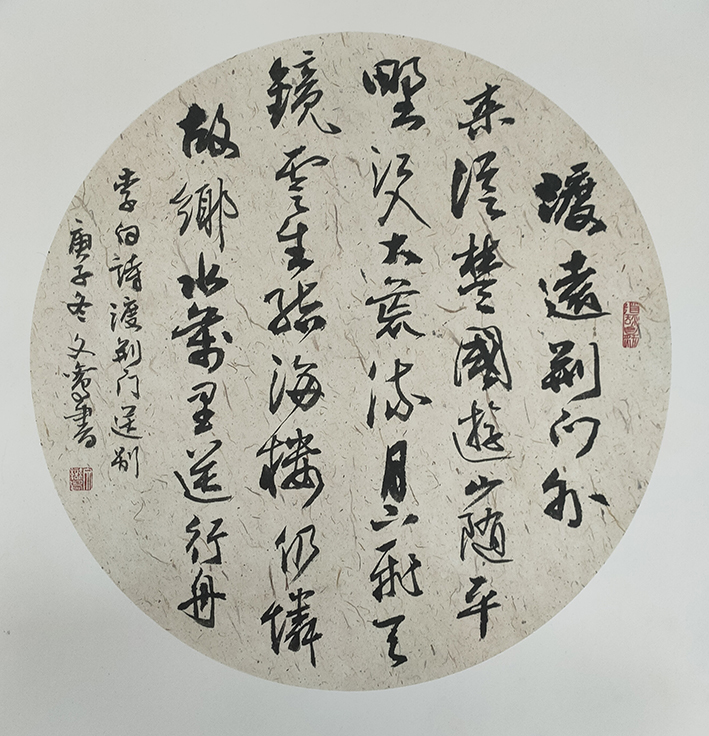 渡遠荆门外
来從楚國遊山随平
野江入大荒流月下飛天
鏡雲生結海楼仍憐
故鄉水萬里送行舟
李白詩渡荆门送别
庚子冬文書